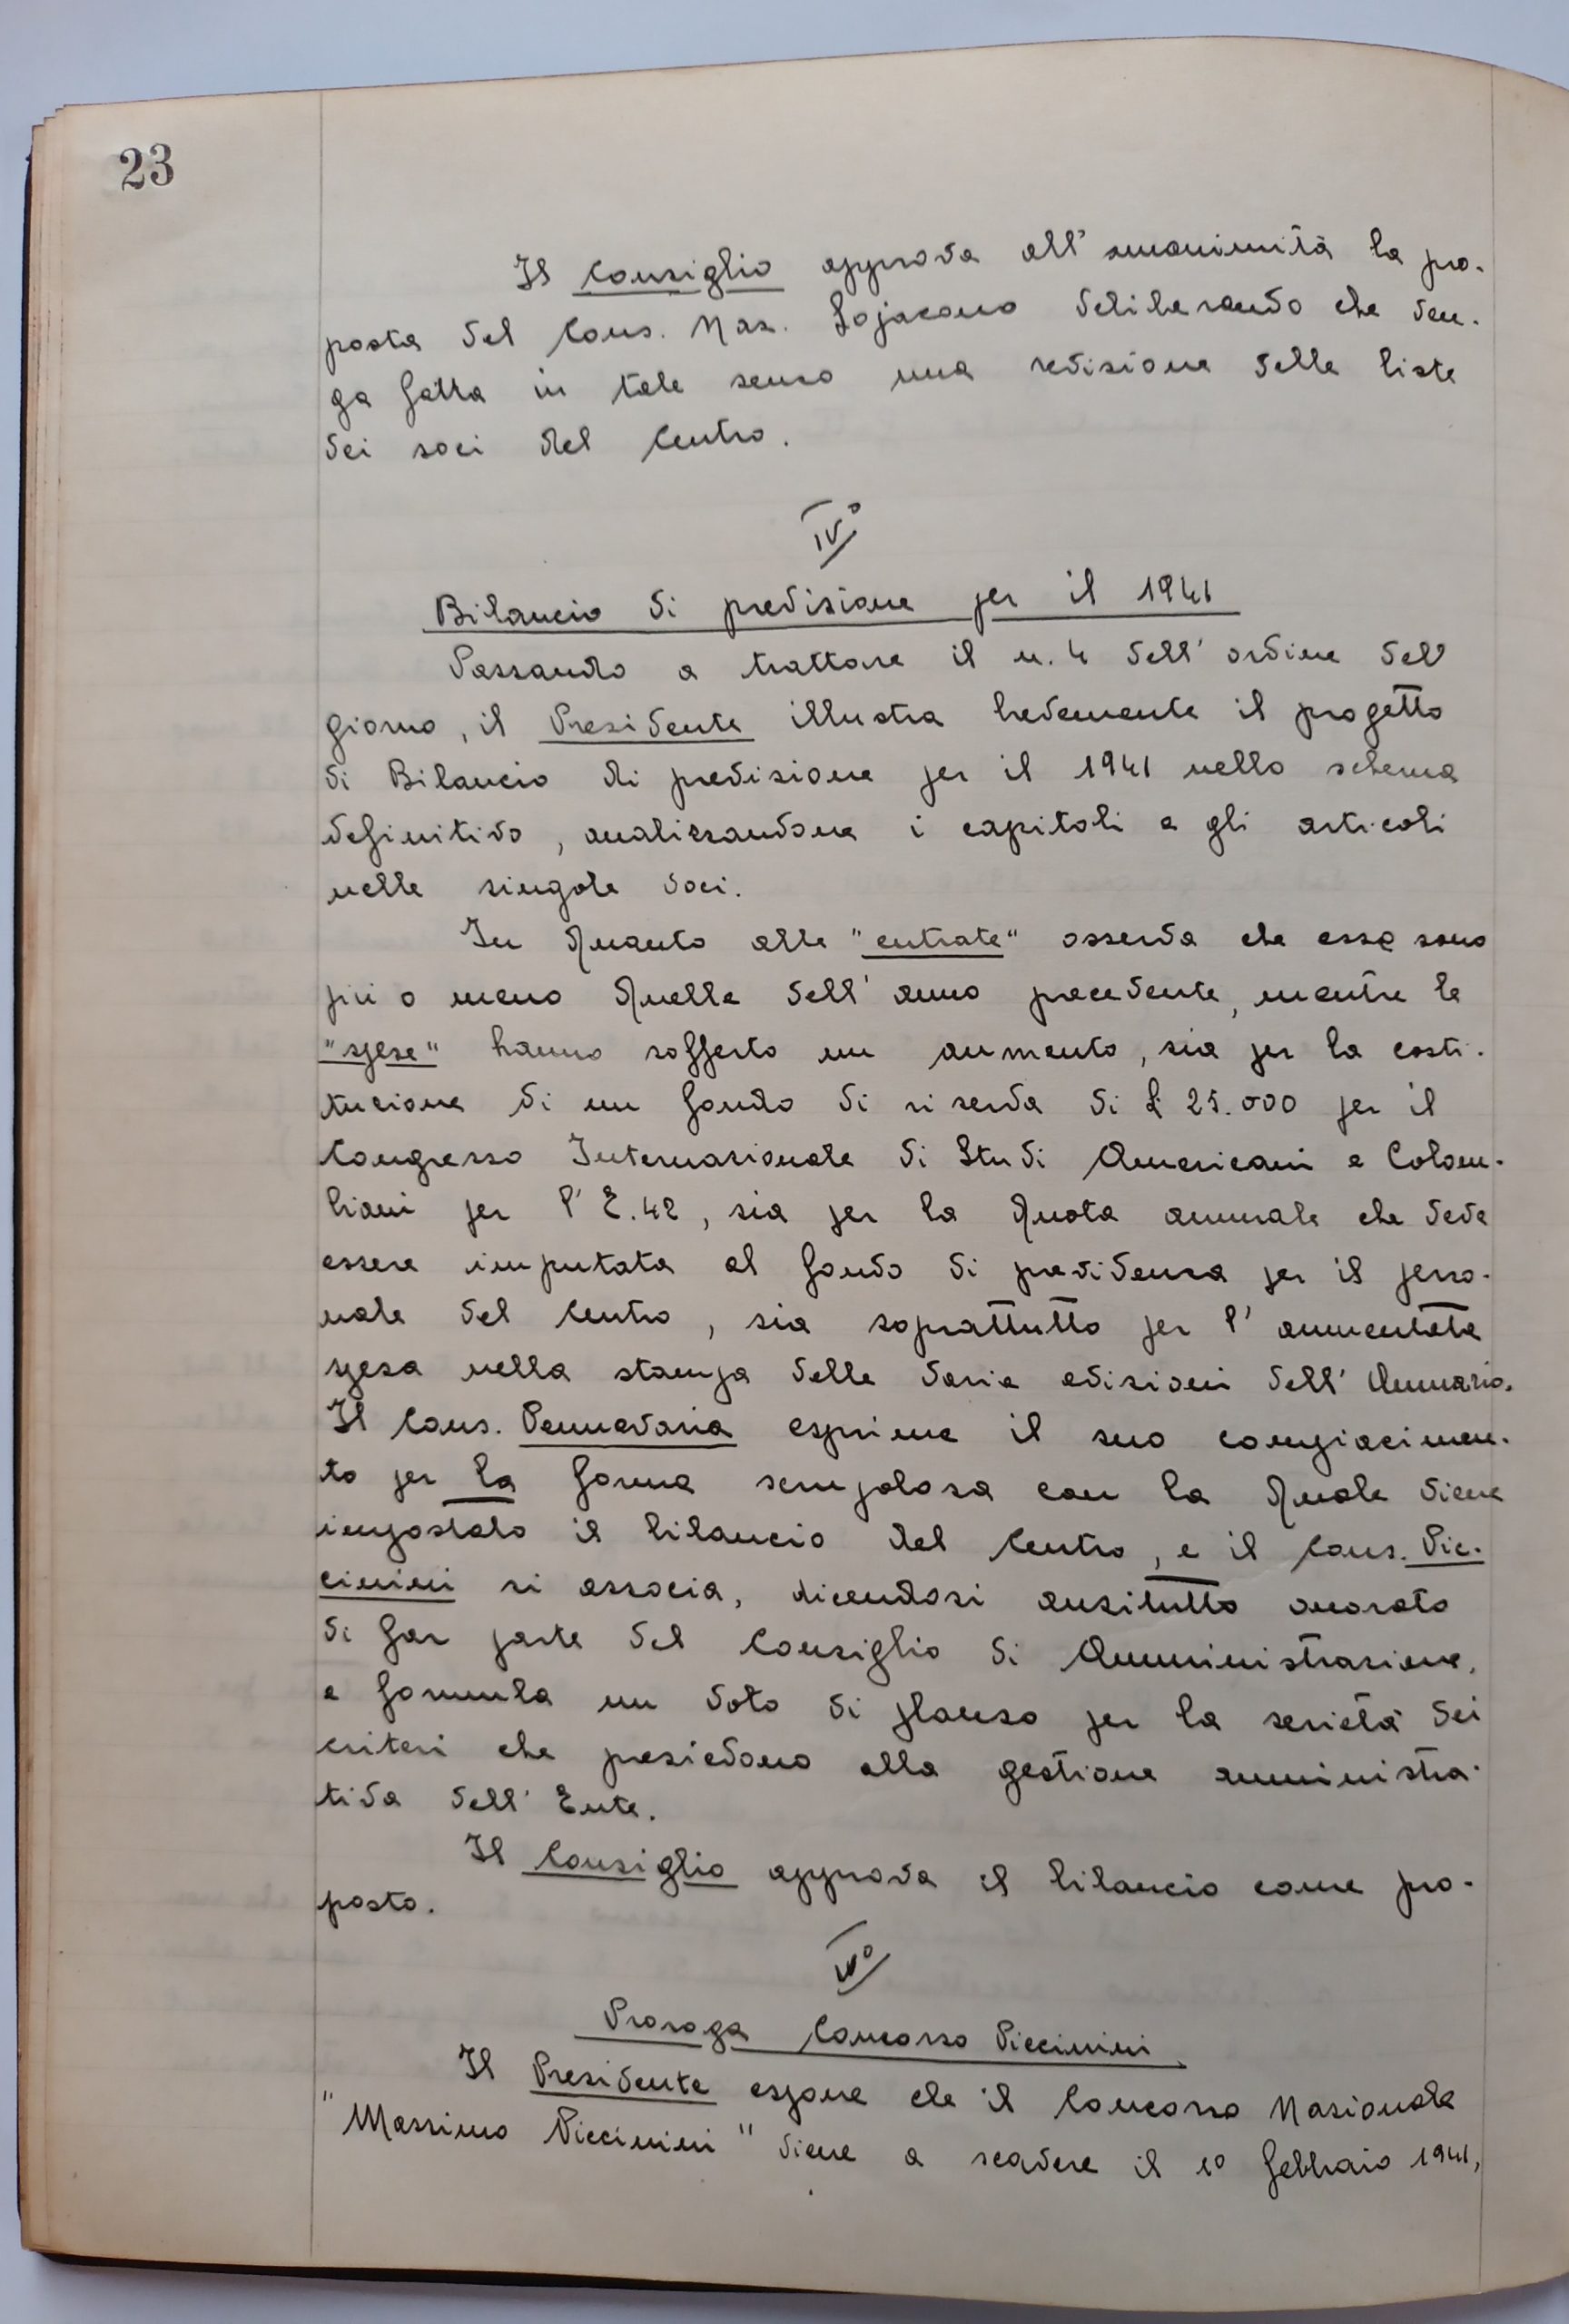 23
Il Consiglio approva all'unanimità la pro-
posta del Cons. Naz. Lojacono deliberando che ven-
ga fatta in tale senso una revisione delle liste
dei soci del Centro.
IV°
Bilancio di previsione per il 1941
Passando a trattare il n. 4 dell'ordine del
giorno, il Presidente illustra brevemente il progetto
di Bilancio di previsione per il 1941 nello schema
definitivo, analizzandone i capitoli e gli articoli
nelle singole voci.
In quanto alle "entrate" osserva che esse sono
più o meno quelle dell'anno precedente, mentre le
"spese" hanno sofferto un aumento, sia per la costi-
tuzione di un fondo di riserva di £ 25.000 per il
Congresso Internazionale di Studi Americani e Colom-
biani per l'E.42, sia per la quota annuale che deve
essere imputata al fondo di previdenza per il perso-
nale del Centro, sia soprattutto per l'aumentata
spesa nella stampa delle varie edizioni dell'Annuario.
Il Cons. Pennavaria esprime il suo compiacimen-
to per la forma scrupolosa con la quale viene
impostato il bilancio del Centro, e il Cons. Pic-
cinini si associa, dicendosi anzitutto onorato
di far parte del Consiglio di Amministrazione,
e formula un voto di plauso per la serietà dei
criteri che presiedono alla gestione amministra-
tiva dell'Ente.
Il Consiglio approva il bilancio come pro-
posto.
V°
Proroga Concorso Piccinini
Il Presidente espone che il Concorso Nazionale
"Massimo Piccinini" viene a scadere il 1° febbraio 1941,